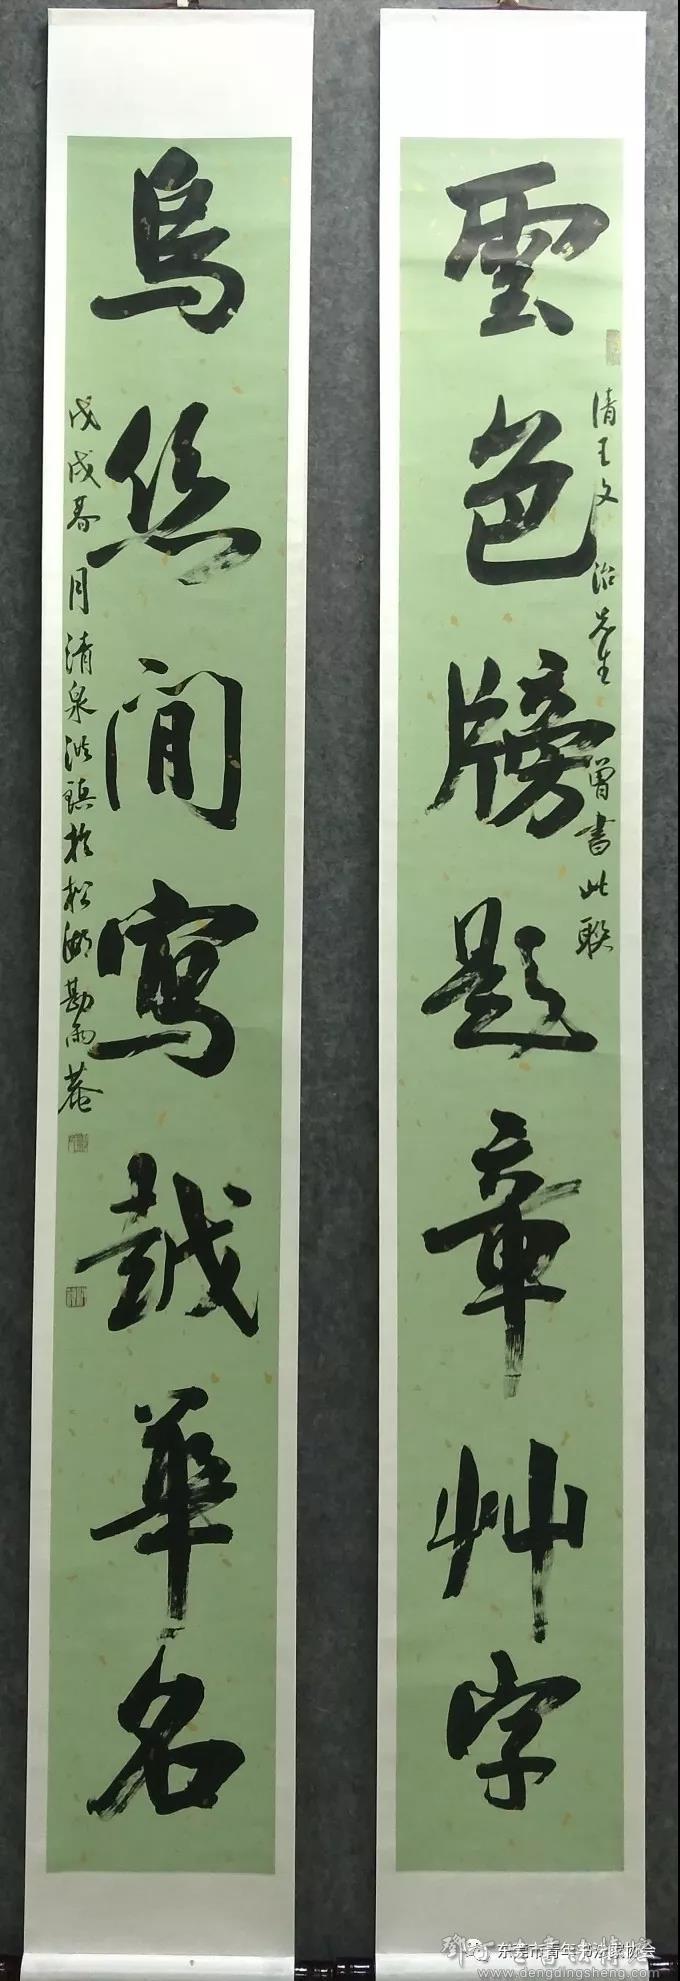 雲色牓題章艸字
清王文治先生曾書此聯
烏丝间寫越華名
戊戌春月清泉洪鎮於松湖勘雨菴
东莞市青年书法家协会
www.dengdingsheng.com